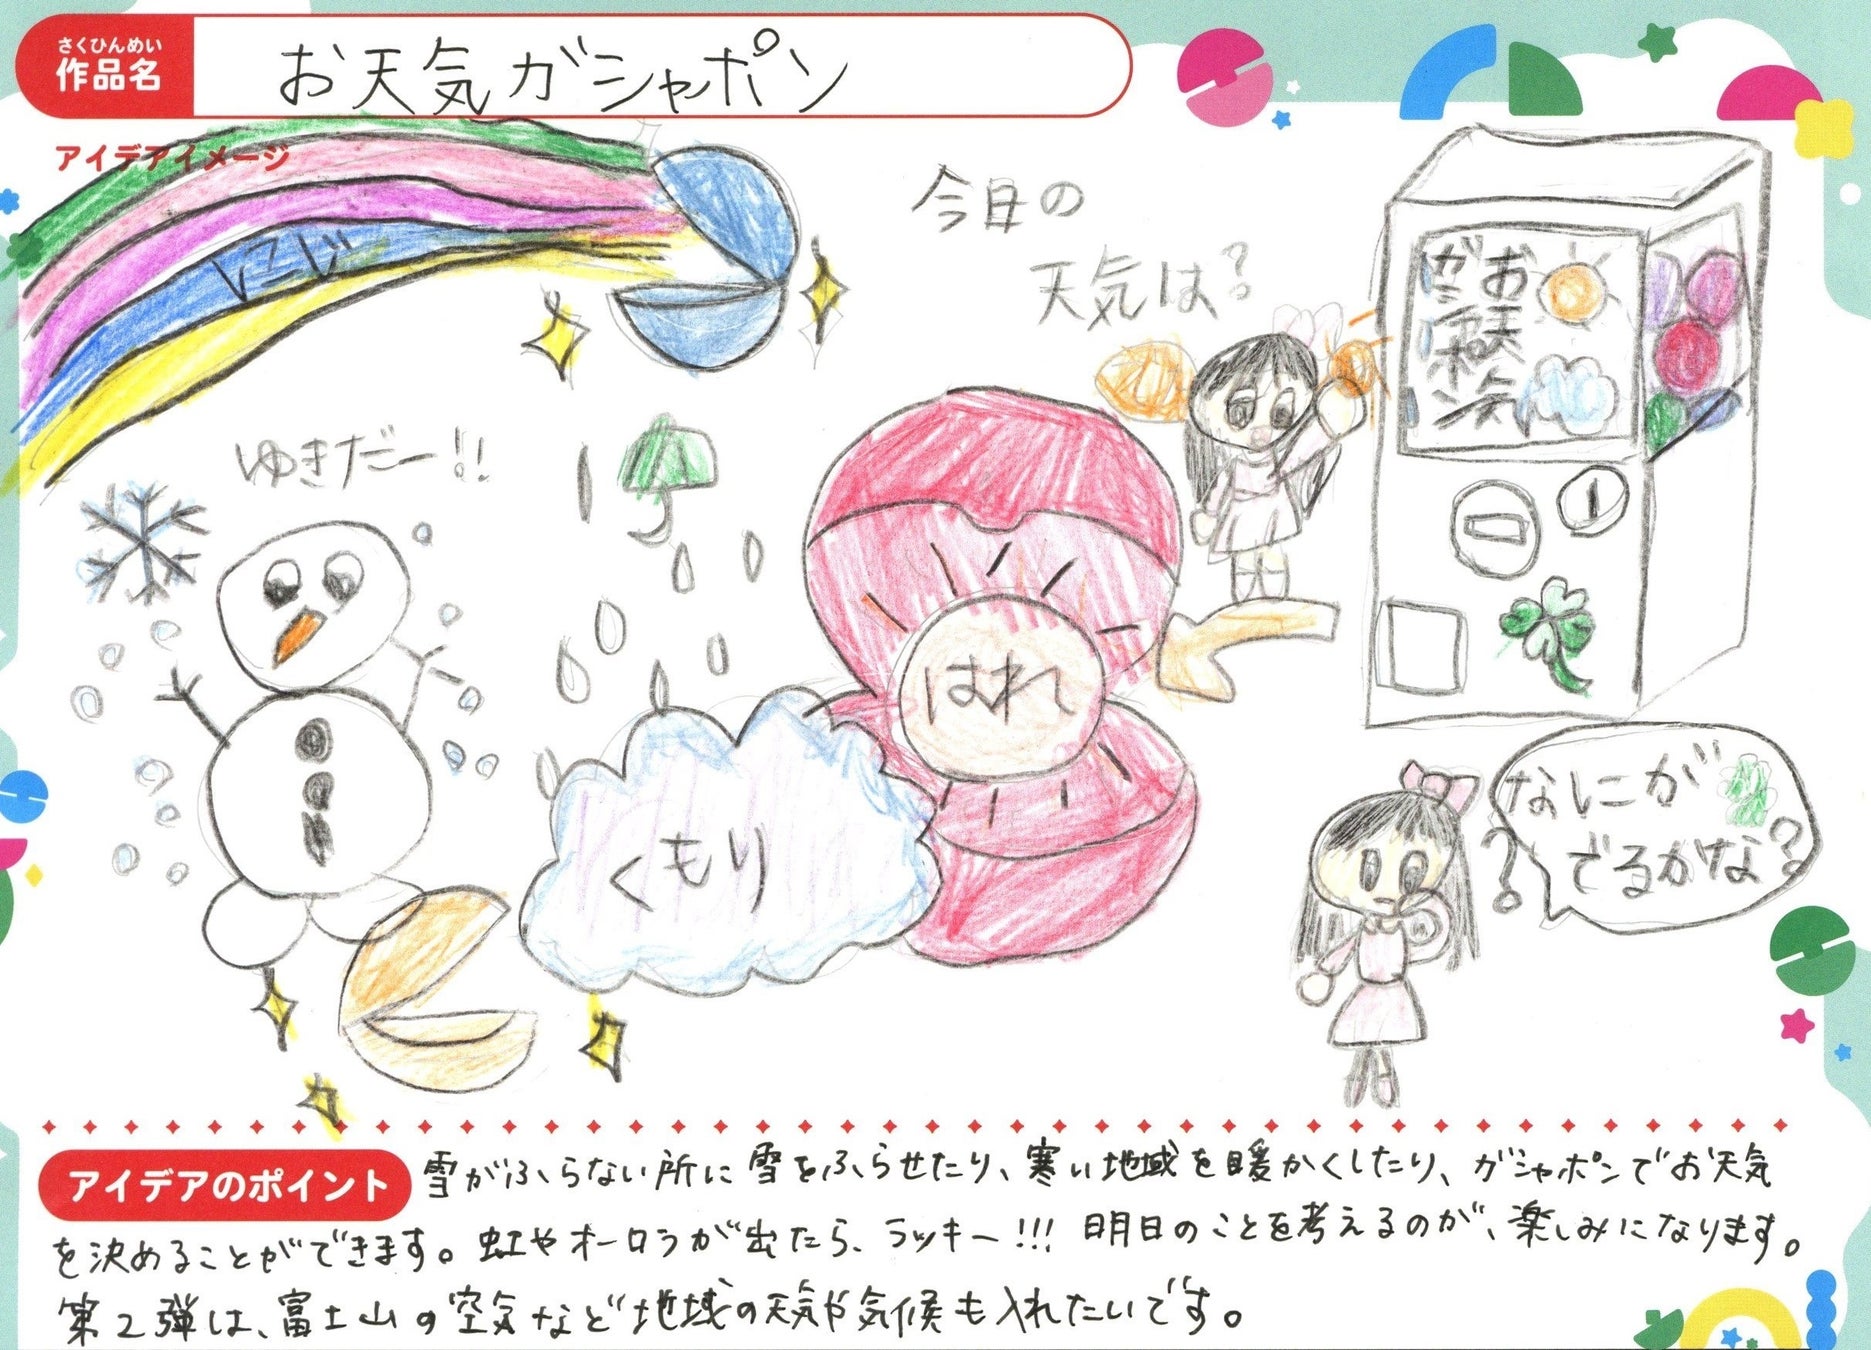 さくひんめい
作品名
お天気ガシャポン
アイデアイメージ
にじ
今日の
天気は?
お天気
ガシャポン
ゆきだー!!
はれ
くもり
なにが
でるかな?
?
アイデアのポイント
雪がふらない所に雪をふらせたり、寒い地域を暖かくしたり、ガシャポンでお天気
を決めることができます。虹やオーロラが出たら、ラッキー!!! 明日のことを考えるのが、楽しみになります。
第2弾は、富士山の空気など地域の天気や気候も入れたいです。